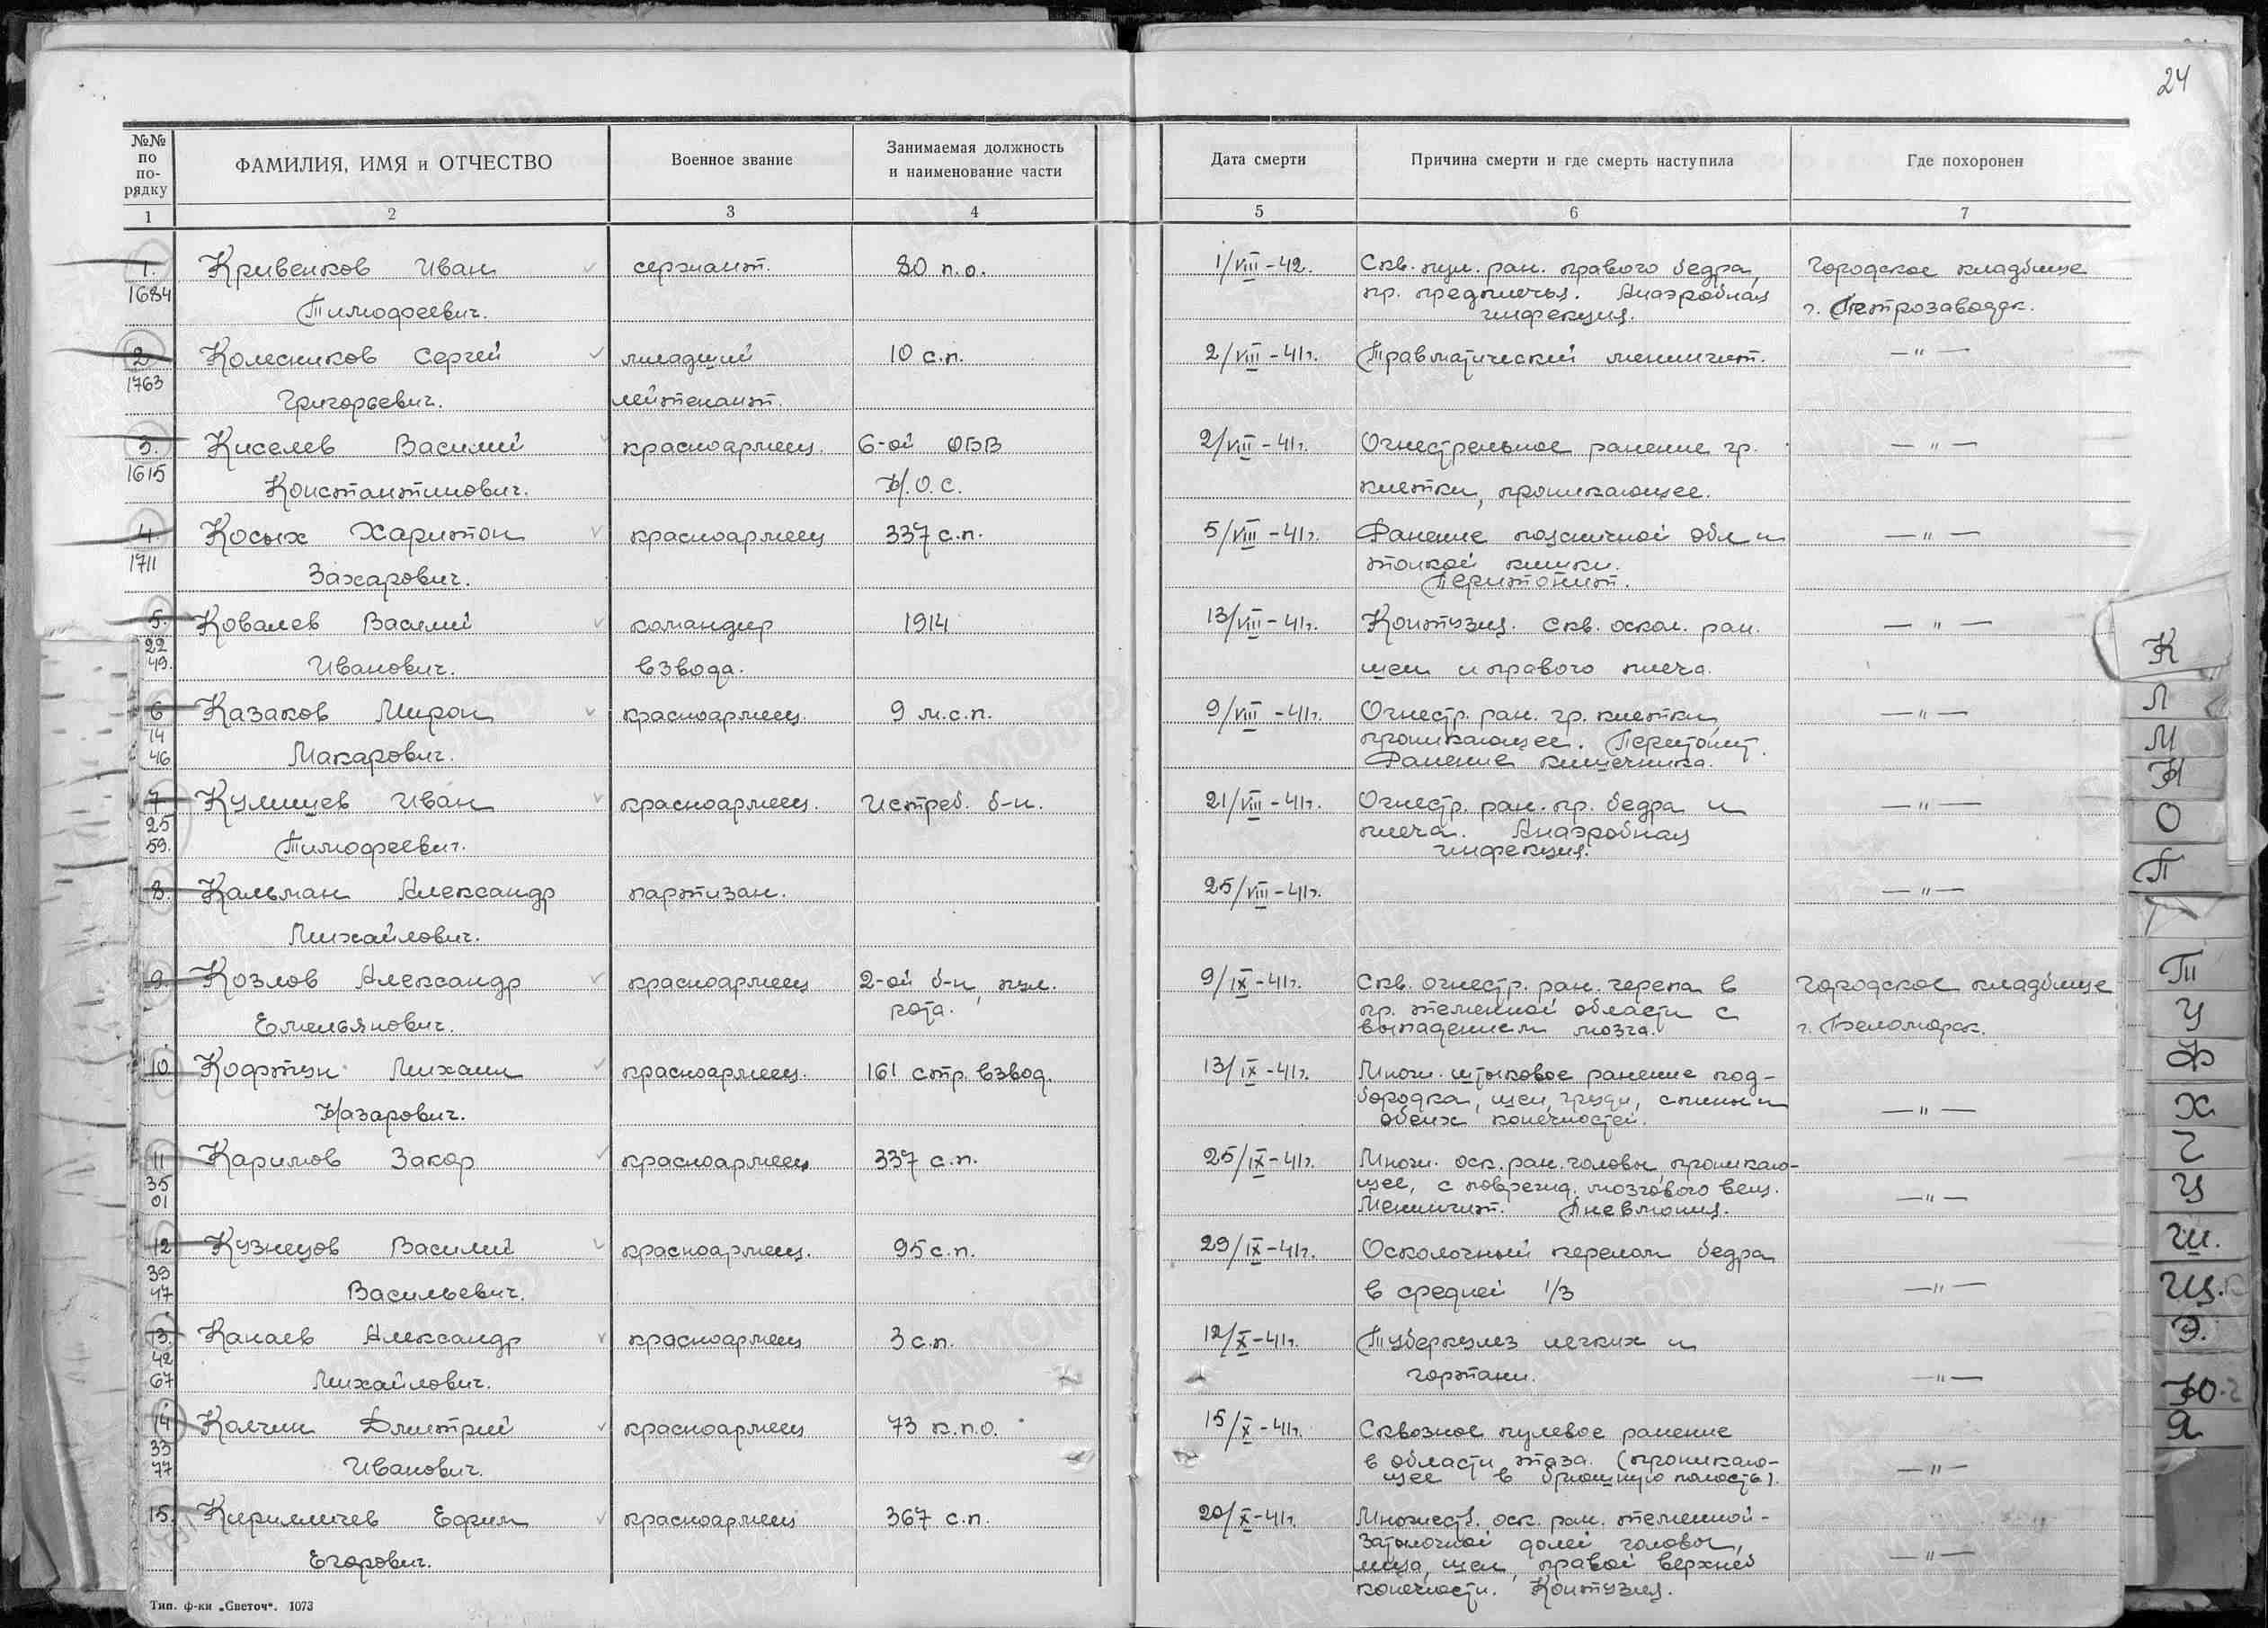 24
№№ по по- рядку
ФАМИЛИЯ, ИМЯ и ОТЧЕСТВО
Военное звание
Занимаемая должность и наименование части
Дата смерти
Причина смерти и где смерть наступила
Где похоронен
1 2 3 4 5 6 7
1. Кривенков Иван сержант. 80 п.о. 1/VIII-42. Скв. пул. ран. правого бедра, Городское кладбище
1684 Тимофеевич. пр. предплечья. Анаэробная г. Петрозаводск.
инфекция.
2 Колесников Сергей младший 10 с.п. 2/VIII-41г. Травматический менингит. —"—
1763 Григорьевич. лейтенант.
3. Киселев Василий красноармеец. 6-ой ОВВ 2/VIII-41г. Огнестрельное ранение гр. —"—
1615 Константинович. Н.О.С. клетки, проникающее.
4. Косых Харитон красноармеец 337 с.п. 5/VIII-41г. Ранение поясничной обл и —"—
1711 Захарович. тонкой кишки.
Перитонит.
5. Ковалев Василий командир 1914 13/VIII-41г. Контузия. Скв. оскол. ран. —"—
22 49. Иванович. взвода. шеи и правого плеча.
6 Казаков Мирон красноармеец. 9 м.с.п. 9/VIII-41г. Огнестр. ран. гр. клетки, —"—
14 46 Макарович. проникающее. Перитонит.
Ранение кишечника.
7 Кулишев Иван красноармеец. Истреб. б-н. 21/VIII-41г. Огнестр. ран. пр. бедра и —"—
25 59. Тимофеевич. плеча. Анаэробная
инфекция.
8. Кальман Александр партизан. 25/VIII-41г. —"—
Михайлович.
9. Козлов Александр красноармеец 2-ой б-н, пул. 9/IX-41г. Скв. огнестр. ран. черепа в Городское кладбище
Емельянович. рота. пр. теменной области с г. Беломорск.
выпадением мозга.
10 Кофтун Михаил красноармеец. 161 стр. взвод. 13/IX-41г. Множ. штыковое ранение под-
Назарович. бородка, шеи, груди, спины и —"—
обеих конечностей.
11 Каримов Закор красноармеец 337 с.п. 25/IX-41г. Множ. оск. ран. головы, проникаю-
35 01 щее, с поврежд. мозгового вещ. —"—
Менингит. Пневмония.
12 Кузнецов Василий красноармеец. 95 с.п. 29/IX-41г. Осколочный перелом бедра
39 47 Васильевич. в средней 1/3 —"—
13. Канаев Александр красноармеец 3 с.п. 12/X-41г. Туберкулез легких и
42 67 Михайлович. гортани. —"—
14 Колчин Дмитрий красноармеец 73 к.п.о. 15/X-41г. Сквозное пулевое ранение
33 77 Иванович. в области таза. (проникаю- —"—
щее в брюшную полость).
15. Кирилличев Ефим красноармеец 367 с.п. 20/X-41г. Множеств. оск. ран. теменной-
Егорович. затылочной долей головы, —"—
лица, шеи, правой верхней
конечности. Контузия.
Тип. ф-ки „Светоч“. 1073
К
Л
М
Н
О
П
Т
У
Ф
Х
Ч
Ц
Ш.
Щ.
Э.
Ю.
Я